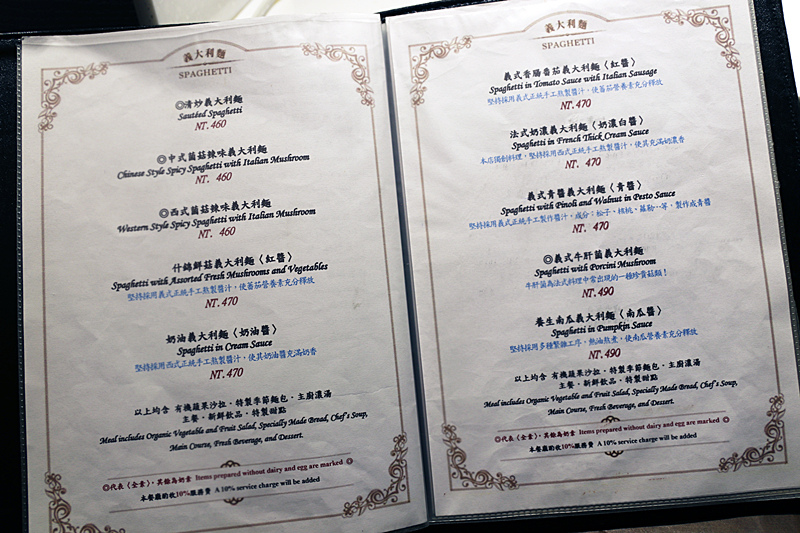 義大利麵
SPAGHETTI
◎清炒義大利麵
Sautéed Spaghetti
NT. 460
◎中式菌菇辣味義大利麵
Chinese Style Spicy Spaghetti with Italian Mushroom
NT. 460
◎西式菌菇辣味義大利麵
Western Style Spicy Spaghetti with Italian Mushroom
NT. 460
什錦鮮菇義大利麵〈紅醬〉
Spaghetti with Assorted Fresh Mushrooms and Vegetables
堅持採用義式正統手工熬製醬汁，使蕃茄營養素充分釋放
NT.470
奶油義大利麵〈奶油醬〉
Spaghetti in Cream Sauce
堅持採用西式正統手工熬製醬汁，使其奶醬充滿奶香
NT.470
以上均含 有機蔬果沙拉．特製季節麵包．主廚濃湯
主餐．新鮮飲品．特製甜點
Meal includes Organic Vegetable and Fruit Salad, Specially Made Bread, Chef's Soup,
Main Course, Fresh Beverage, and Dessert.
◎代表〈全素〉，其餘為奶素 Items prepared without dairy and egg are marked ◎
本餐廳酌收10%服務費 A 10% service charge will be added
義大利麵
SPAGHETTI
義式香腸番茄義大利麵〈紅醬〉
Spaghetti in Tomato Sauce with Italian Sausage
堅持採用義式正統手工熬製醬汁，使蕃茄營養素充分釋放
NT.470
法式奶濃義大利麵〈奶濃白醬〉
Spaghetti in French Thick Cream Sauce
本店獨創料理，堅持採用西式正統手工熬製醬汁，使其充滿奶濃香
NT. 470
義式青醬義大利麵〈青醬〉
Spaghetti with Pinoli and Walnut in Pesto Sauce
堅持採用義式正統手工製作醬汁，成分：松子、核桃、羅勒…等，製作成青醬
NT. 470
◎義式牛肝菌義大利麵
Spaghetti with Porcini Mushroom
牛肝菌為法式料理中常出現的一種珍貴菇類！
NT.490
養生南瓜義大利麵〈南瓜醬〉
Spaghetti in Pumpkin Sauce
堅持採用多種繁雜工序，熱油熬煮，使南瓜營養素充分釋放
NT.490
以上均含 有機蔬果沙拉．特製季節麵包．主廚濃湯
主餐．新鮮飲品．特製甜點
Meal includes Organic Vegetable and Fruit Salad, Specially Made Bread, Chef's Soup,
Main Course, Fresh Beverage, and Dessert.
◎代表〈全素〉，其餘為奶素 Items prepared without dairy and egg are marked ◎
本餐廳酌收10%服務費 A 10% service charge will be added